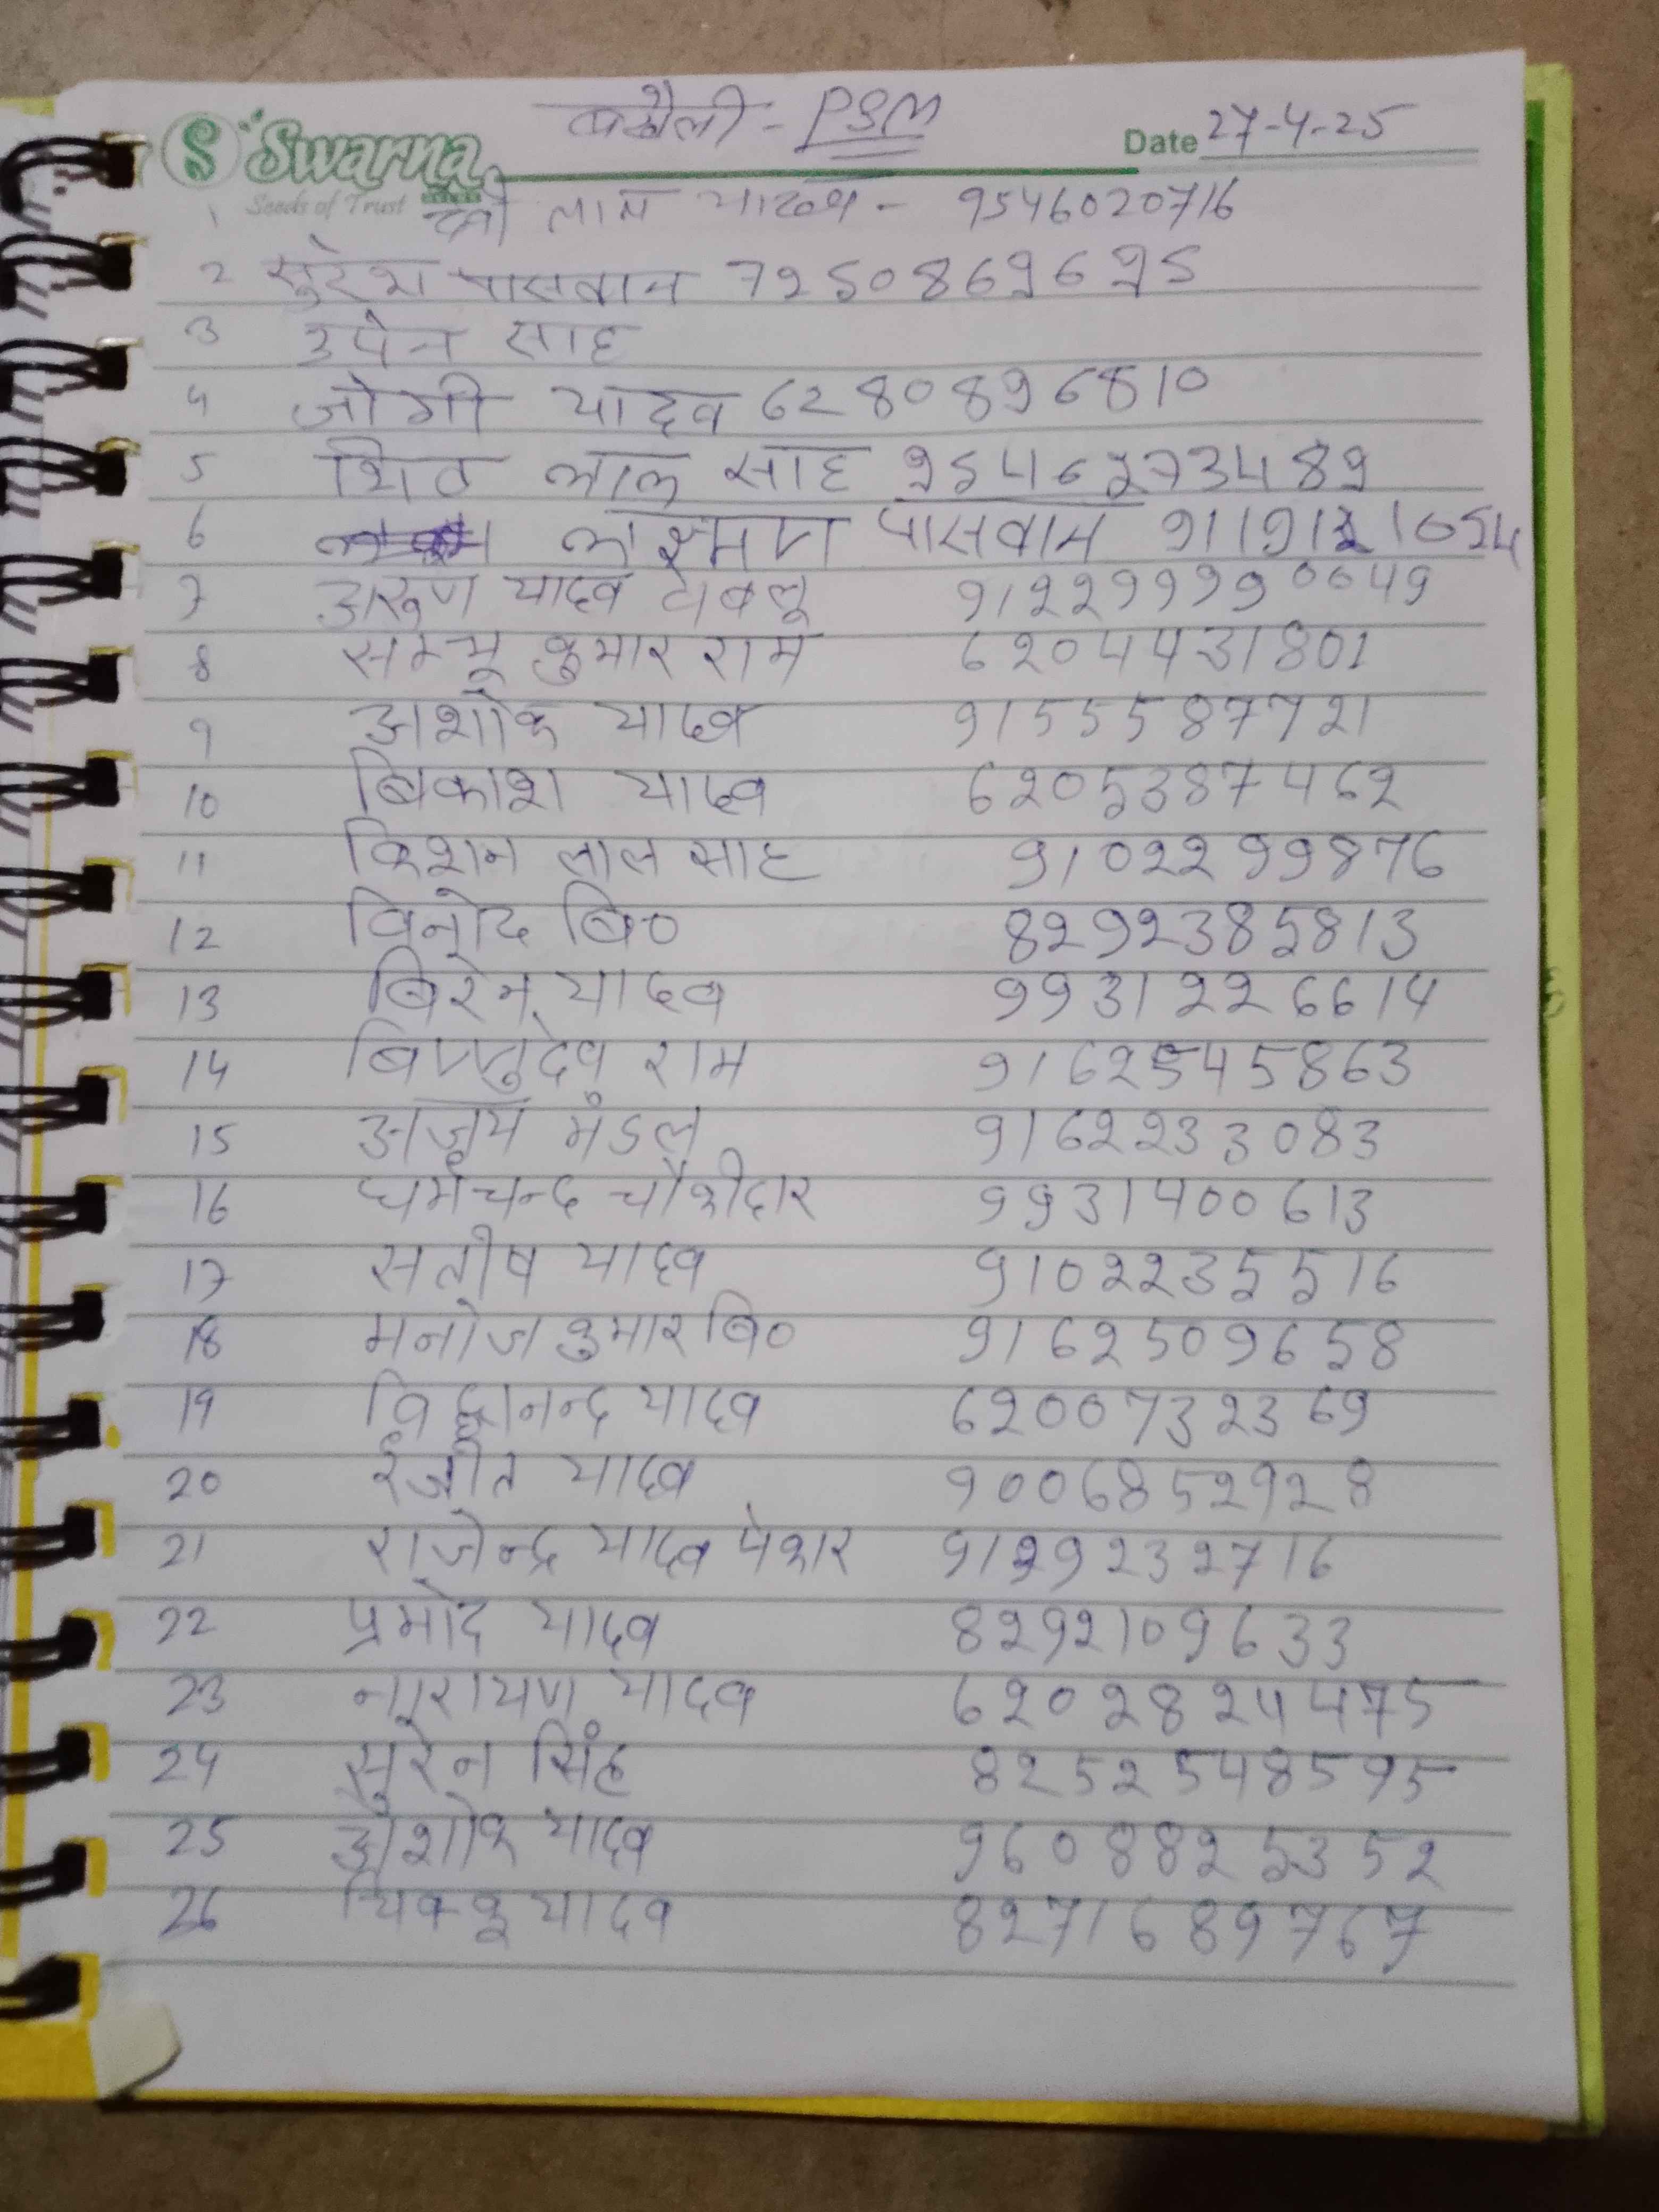 Swarna
Seeds of Trust
बखैली - PSM
Date 27-4-25
1 लाल यादव - 9546020716
2 सुरेश पासवान 7250869695
3 उपेन साह
4 जोगी यादव 6280896810
5 शिव लाल साह
6 लक्ष्मण पासवान
7 अरुण यादव टाबलू
8 सम्भू कुमार राम 6204431801
9 अशोक यादव 9155587721
10 बिकाश यादव 6205387462
11 किशन लाल साह 9102299876
12 विनोद बि० 8292385813
13 बिरेन यादव 9931226614
14 बिष्णुदेव राम 9162545863
15 अजय मंडल 9162233083
16 धर्मचन्द चौकीदार 9931400613
17 सतीष यादव 9102235516
18 मनोज कुमार बि० 9162509658
19 विद्यानन्द यादव 6200732369
20 रंजीत यादव 9006852928
21 राजेन्द्र यादव पेशर 9129232716
22 प्रमोद यादव 8292109633
23 नारायण यादव 6202824475
24 सुरेन सिंह 8252548595
25 अशोक यादव 9608825352
26 यादव 8271689767